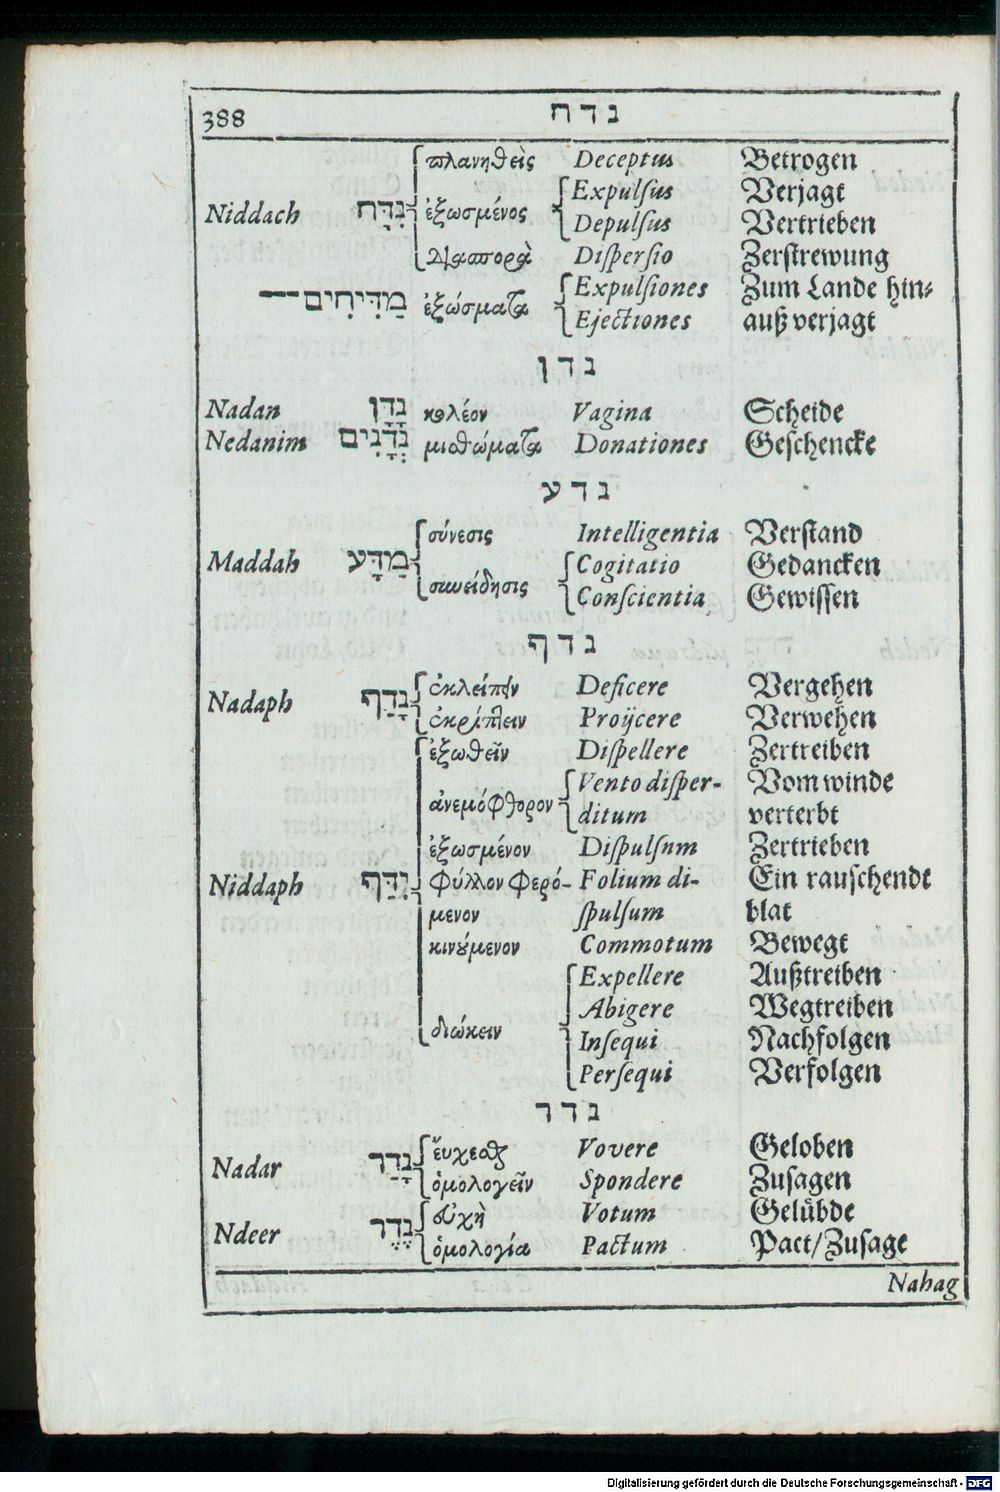 388 נדח
πλανηθεὶς Deceptus Betrogen
Expulſus Verjagt
Niddach נִדָּח ἐξωσμένος
Depulſus Vertrieben
διασπορὰ Diſperſio Zerſtrewung
Expulſiones Zum Lande hin⸗
מַדִּיחִים ἐξώσματα
Ejectiones auß verjagt
נדן
Nadan נָדָן κολέον Vagina Scheide
Nedanim נְדָנִים μισθώματα Donationes Geſchencke
נדע
σύνεσις Intelligentia Verſtand
Maddah מַדָּע Cogitatio Gedancken
συνείδησις Conſcientia Gewiſſen
נדף
ἐκλείπειν Deficere Vergehen
Nadaph נָדַף
ἐκρίπτειν Proijcere Verwehen
ἐξωθεῖν Diſpellere Zertreiben
Vento diſper- Vom winde
ἀνεμόφθορον
ditum verterbt
ἐξωσμένον Diſpulſnm Zertrieben
Niddaph נִדַּף φύλλον φερό- Folium di- Ein rauſchendt
μενον ſpulſum blat
κινούμενον Commotum Bewegt
Expellere Außtreiben
Abigere Wegtreiben
διώκειν
Inſequi Nachfolgen
Perſequi Verfolgen
נדר
εὔχεσθαι Vovere Geloben
Nadar נָדַר
ὁμολογεῖν Spondere Zuſagen
εὐχὴ Votum Gelübde
Ndeer נֶדֶר
ὁμολογία Pactum Pact/Zuſage
Nahag
Digitalisierung gefördert durch die Deutsche Forschungsgemeinschaft - DFG